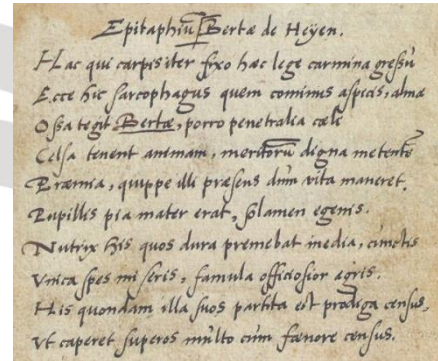 Epitaphiū Bertæ de Heÿen.
Hac qui carpis iter fixo hæc lege carmina gressū
Ecce hic sarcophagus quem cominus aspicis, almæ
Ossa tegit Bertæ, porro penetralia cæli
Celsa tenent animam, meritorū digna metentē
Præmia, quippe illi præsens dūm vita maneret,
Pupillis pia mater erat, solamen egenis.
Nutrix his quos dura premebat inedia, cunctis
Vnica spes miseris, famula officiosior ægris.
His quondam illa suos partita est prodiga census,
Vt caperet superos multo cùm fœnore census.